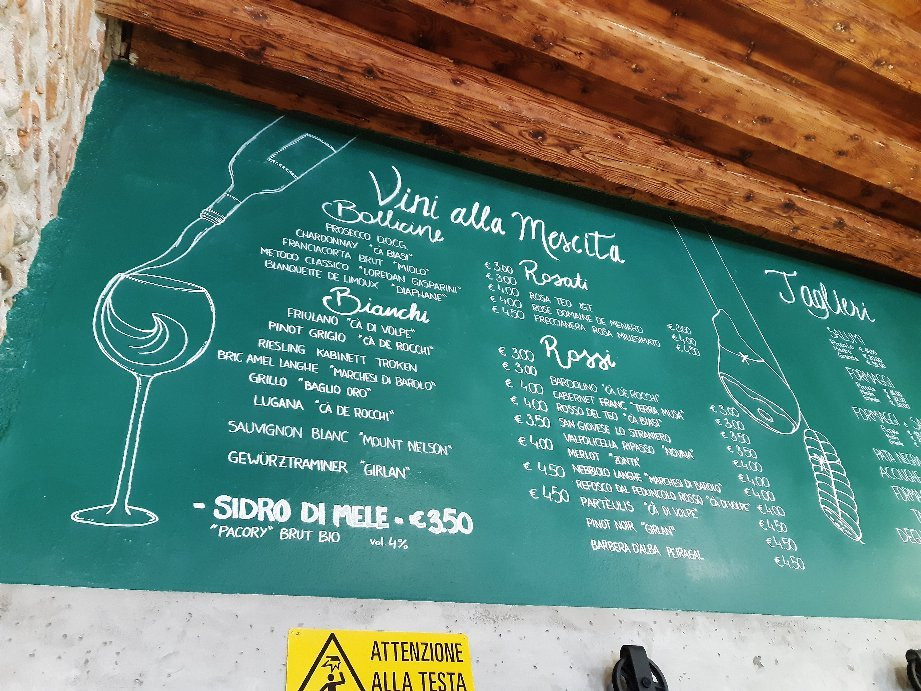 Vini alla Mescita
Bollicine
PROSECCO DOCG € 3.00
CHARDONNAY "CÀ BIASI" € 3.00
FRANCIACORTA BRUT "MIOLO" € 4.00
METODO CLASSICO "LOREDAN GASPARINI" € 4.00
BLANQUETTE DE LIMOUX "DIAPHANE" € 4.50
Bianchi
FRIULANO "CÀ DI VOLPE" € 3.00
PINOT GRIGIO "CÀ DE ROCCHI" € 3.00
RIESLING KABINETT TROKEN € 4.00
BRIC AMEL LANGHE "MARCHESI DI BAROLO" € 4.00
GRILLO "BAGLIO ORO" € 3.50
LUGANA "CÀ DE ROCCHI" € 4.00
SAUVIGNON BLANC "MOUNT NELSON" € 4.50
GEWÜRZTRAMINER "GIRLAN" € 4.50
- SIDRO DI MELE - € 3.50
"PACORY" BRUT BIO vol 4%
Rosati
ROSA TEO IGT € 3.00
ROSÉ DOMAINE DE MENARD € 4.00
FRECCIANERA ROSA MILLESIMATO € 4.50
Rossi
BARDOLINO "CÀ DE ROCCHI" € 3.00
CABERNET FRANC "TERRA MUSA" € 3.00
ROSSO DEL TEO "CÀ BIASI" € 3.50
SAN GIOVESE LO STRANIERO € 3.50
VALPOLICELLA RIPASSO "NOVAIA" € 4.00
MERLOT "ZONTA" € 4.00
NEBBIOLO LANGHE "MARCHESI DI BAROLO" € 4.00
REFOSCO DAL PEDUNCOLO ROSSO "CÀ DI VOLPE" € 4.00
PARTÈULIS "CÀ DI VOLPE" € 4.50
PINOT NOIR "GIRLAN" € 4.50
BARBERA D'ALBA PEIRAGAL € 4.50
Taglieri
SALUMI
FORMAGGI
FORMAGGI
PATA NEGRA
ATTENZIONE
ALLA TESTA